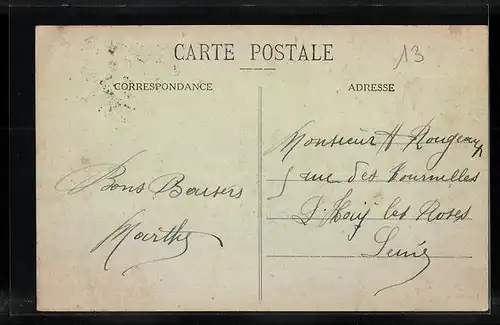 CARTE POSTALE
13
CORRESPONDANCE
ADRESSE
Bons Baisers
Marthe
Monsieur H Rougeaux
5 rue des Tournelles
L'Haÿ les Roses
Seine